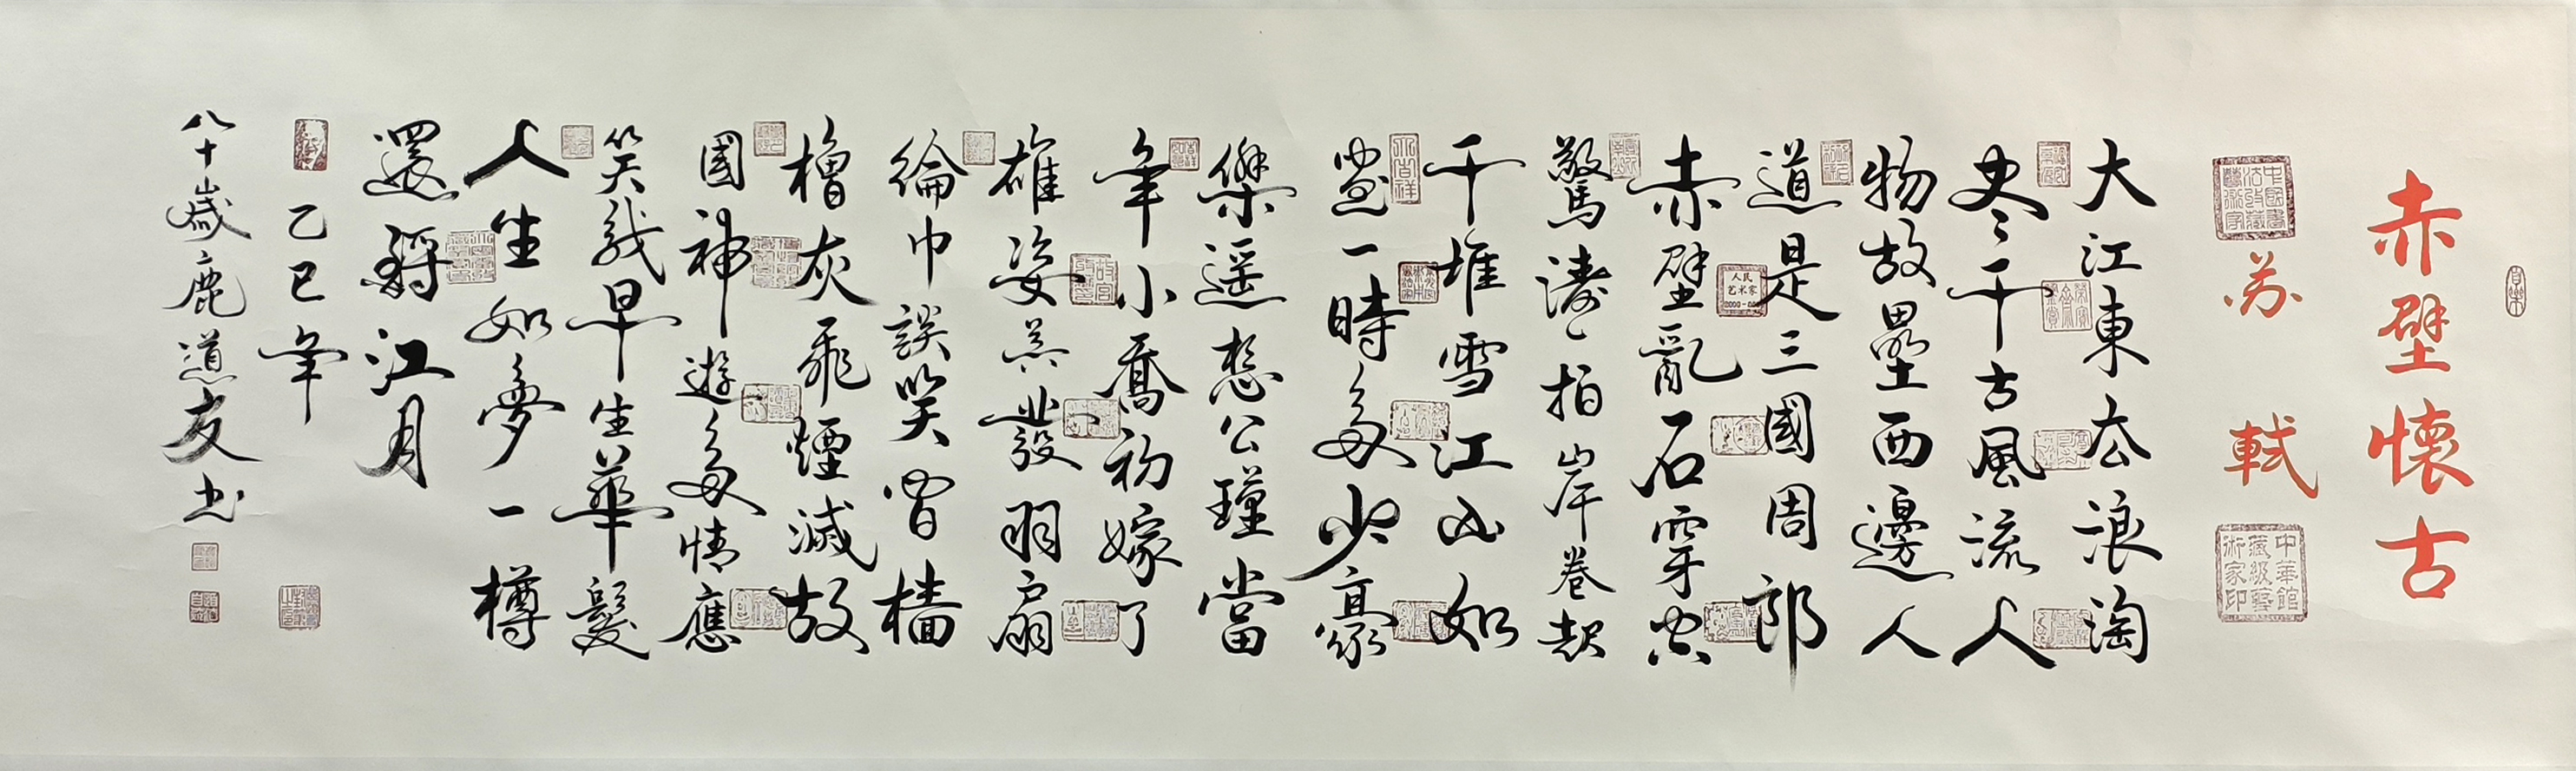 自樂
赤壁懷古
苏軾
中華館藏級藝術家印
大江東去浪淘
尽千古風流人
物故壘西邊人
道是三國周郎
人民艺术家
赤壁亂石穿空
驚濤拍岸卷起
千堆雪江山如
畫一時多少豪
傑遥想公瑾當
年小喬初嫁了
雄姿英發羽扇
綸巾談笑間檣
櫓灰飛煙滅故
國神遊多情應
笑我早生華髮
人生如夢一樽
還酹江月
乙巳年
八十歲鹿道友书